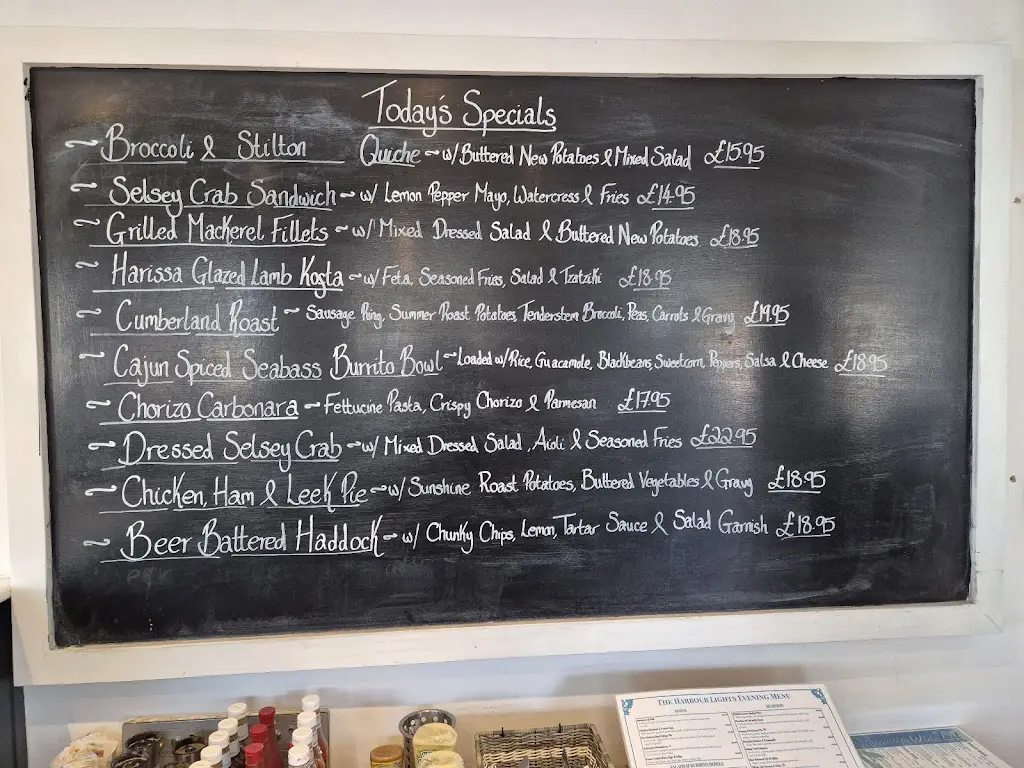 Today's Specials
~ Broccoli & Stilton Quiche ~ w/ Buttered New Potatoes & Mixed Salad £15.95
~ Selsey Crab Sandwich ~ w/ Lemon Pepper Mayo, Watercress & Fries £14.95
~ Grilled Mackerel Fillets ~ w/ Mixed Dressed Salad & Buttered New Potatoes £18.95
~ Harissa Glazed Lamb Kofta ~ w/ Feta, Seasoned Fries, Salad & Tzatziki £18.95
~ Cumberland Roast ~ Sausage Ring, Summer Roast Potatoes, Tenderstem Broccoli, Peas, Carrots & Gravy £19.95
~ Cajun Spiced Seabass Burrito Bowl ~ Loaded w/ Rice, Guacamole, Blackbeans, Sweetcorn, Peppers, Salsa & Cheese £18.95
~ Chorizo Carbonara ~ Fettucine Pasta, Crispy Chorizo & Parmesan £17.95
~ Dressed Selsey Crab ~ w/ Mixed Dressed Salad, Aioli & Seasoned Fries £22.95
~ Chicken, Ham & Leek Pie ~ w/ Sunshine Roast Potatoes, Buttered Vegetables & Gravy £18.95
~ Beer Battered Haddock ~ w/ Chunky Chips, Lemon, Tartar Sauce & Salad Garnish £18.95
The Harbour Lights Evening Menu